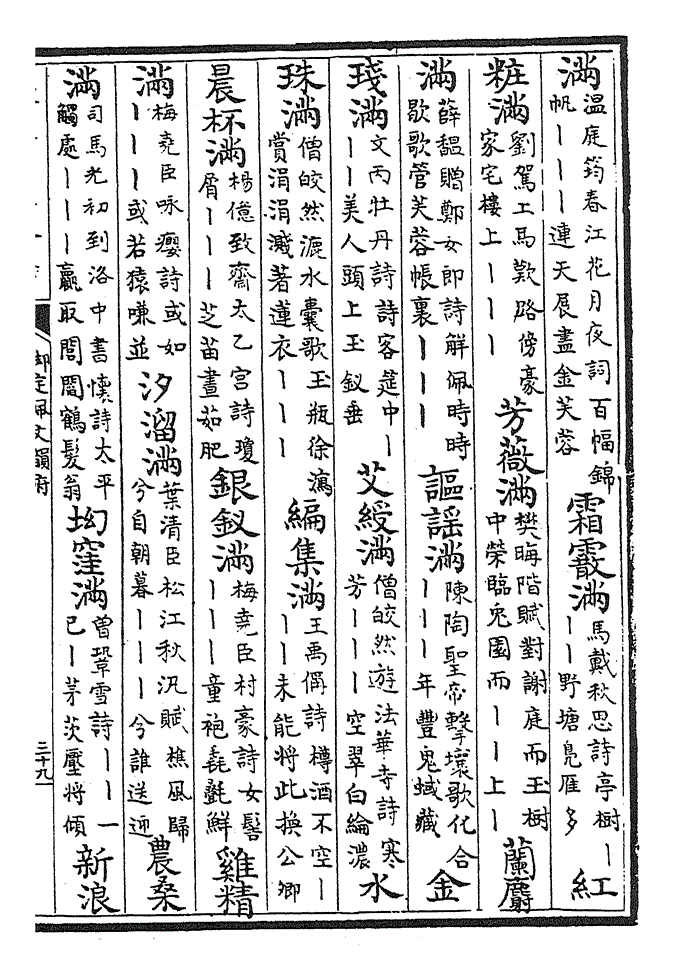 滿 溫庭筠春江花月夜詞百幅錦帆丨丨丨連天展盡金芙蓉 霜霰滿 馬戴秋思詩亭樹丨丨丨野塘鳧雁多 紅
粧滿 劉駕上馬歎路傍豪家宅樓上丨丨丨 芳薇滿 樊晦階賦對謝庭而玉樹中榮臨兔園而丨丨上丨 蘭麝
滿 薛馧贈鄭女郎詩解佩時時歇歌管芙蓉帳裏丨丨丨 謳謠滿 陳陶聖帝擊壤歌化合丨丨丨年豐鬼蜮藏 金
琖滿 文丙牡丹詩詩客筵中丨丨丨美人頭上玉釵垂 艾綬滿 僧皎然遊法華寺詩寒芳丨丨丨空翠白綸濃 水
珠滿 僧皎然漉水囊歌玉瓶徐瀉賞涓涓濺著蓮衣丨丨丨 編集滿 王禹偁詩樽酒不空丨丨丨未能將此換公卿
晨杯滿 楊億致齋太乙宮詩瓊屑丨丨丨芝苗晝茹肥 銀釵滿 梅堯臣村豪詩女髻丨丨丨童袍毳㲲鮮 雞精
滿 梅堯臣咏癭詩或如丨丨丨或若猿嗛並 汐溜滿 葉清臣松江秋汎賦樵風歸兮自朝暮丨丨丨兮誰送迎 農桑
滿 司馬光初到洛中書懷詩太平觸處丨丨丨贏取閭閻鶴髮翁 坳窪滿 曾鞏雪詩丨丨一已丨茅茨壓將傾 新浪
御定佩文韻府
三十九